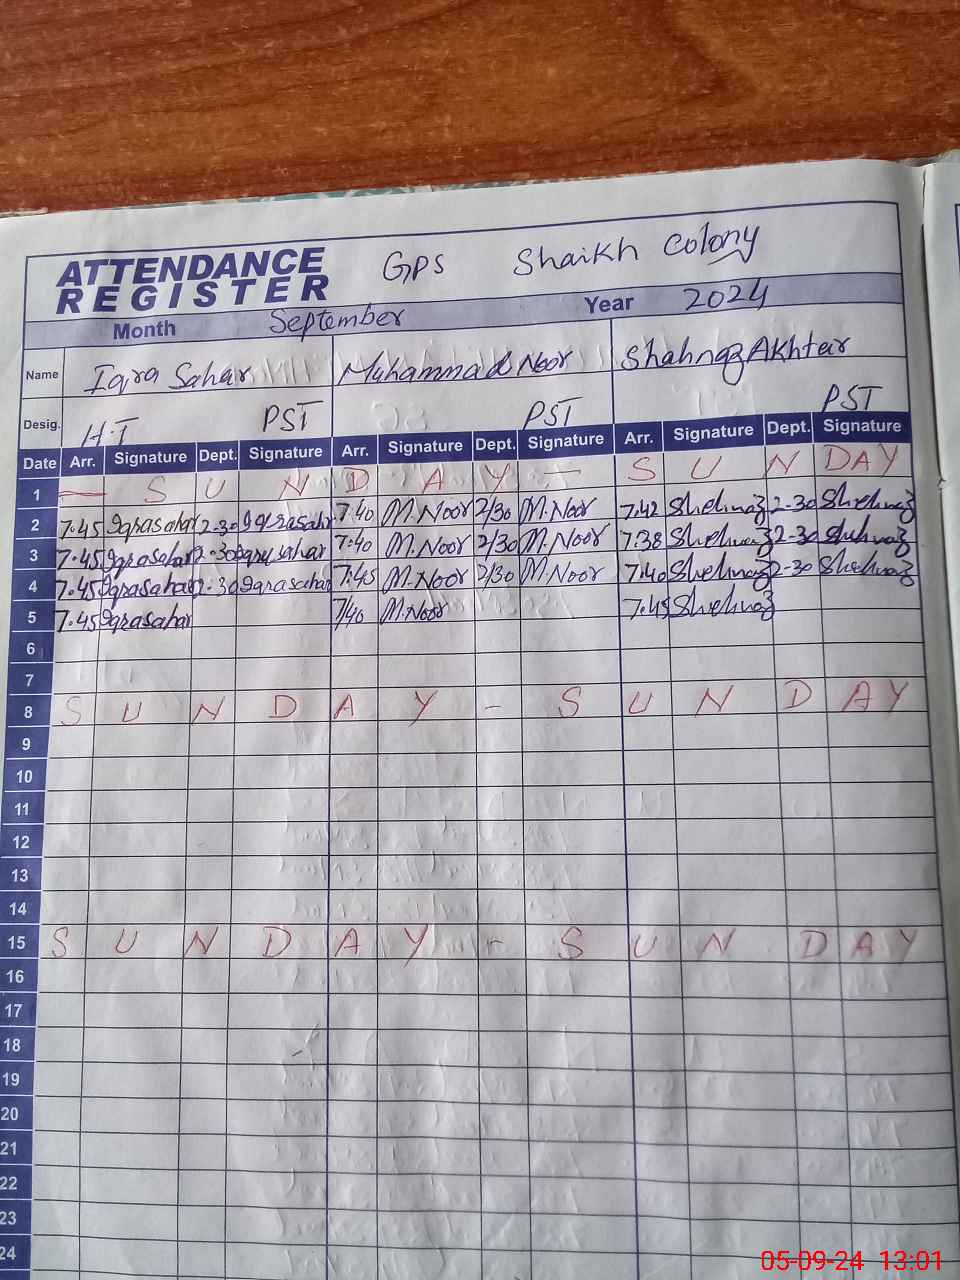 ATTENDANCE REGISTER GPS Shaikh Colony
Month September Year 2024
Name Iqra Sahar Muhammad Noor Shahnaz Akhtar
Desig. H.T PST PST PST
Date Arr. Signature Dept. Signature Arr. Signature Dept. Signature Arr. Signature Dept. Signature
1 — S U N D A Y — S U N DAY
2 7.45 Iqrasahar 2-30 Iqrasahar 7.40 M.Noor 2/30 M.Noor 7.42 Shehnaz 2-30 Shehnaz
3 7.45 Iqrasahar 2-30 Iqrasahar 7.40 M.Noor 2/30 M.Noor 7.38 Shehnaz 2-30 Shehnaz
4 7.45 Iqrasahar 2-30 Iqrasahar 7.45 M.Noor 2/30 M.Noor 7.40 Shehnaz 2-30 Shehnaz
5 7.45 Iqrasahar 7/40 M.Noor 7.45 Shehnaz
6
7
8 S U N D A Y - S U N D A Y
9
10
11
12
13
14
15 S U N D A Y - S U N D A Y
16
17
18
19
20
21
22
23
24
05-09-24 13:01